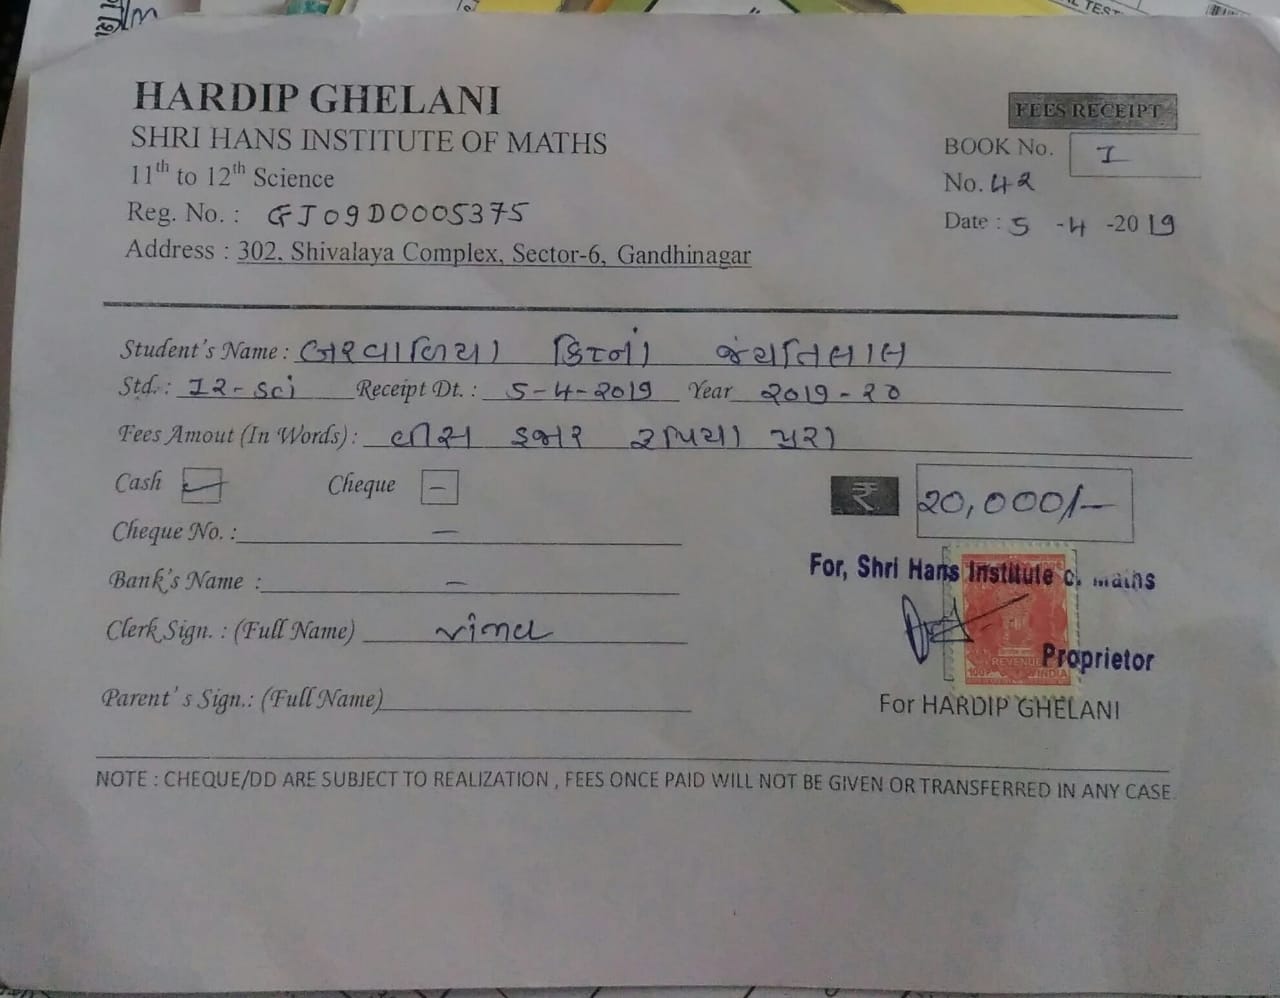 HARDIP GHELANI
SHRI HANS INSTITUTE OF MATHS
11th to 12th Science
Reg. No. : GJ09D0005375
Address : 302, Shivalaya Complex, Sector-6, Gandhinagar
FEES RECEIPT
BOOK No. 1
No. 42
Date : 5 -4 -2019
Student's Name : બરવાળિયા જયંતિલાલ
Std. : 12-sci Receipt Dt. : 5-4-2019 Year 2019-20
Fees Amout (In Words) : વીસ હજાર રૂપિયા પુરા
Cash Cheque –
₹ 20,000/-
Cheque No. : —
Bank's Name : —
Clerk Sign. : (Full Name)
Parent's Sign.: (Full Name)
For, Shri Hans Institute of Maths
REVENUE
INDIA
Proprietor
For HARDIP GHELANI
NOTE : CHEQUE/DD ARE SUBJECT TO REALIZATION , FEES ONCE PAID WILL NOT BE GIVEN OR TRANSFERRED IN ANY CASE.